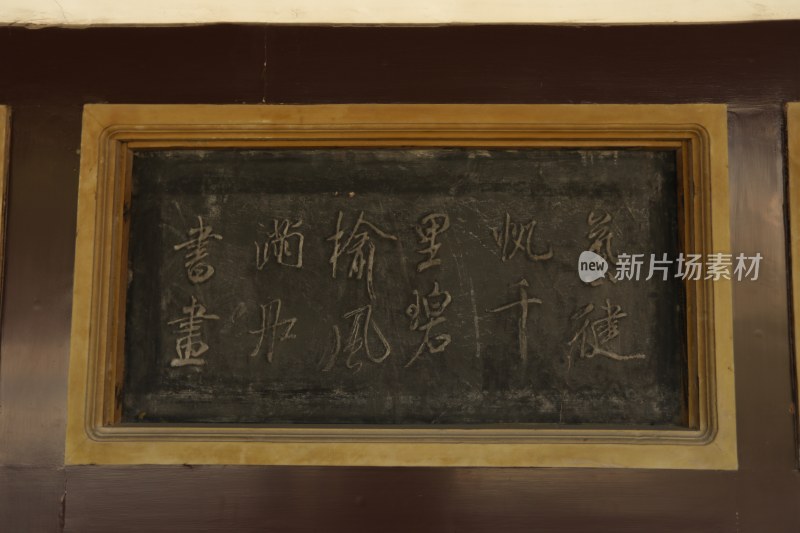 氣健
帆千
里碧
榆風
滿舟
書畫
new 新片场素材